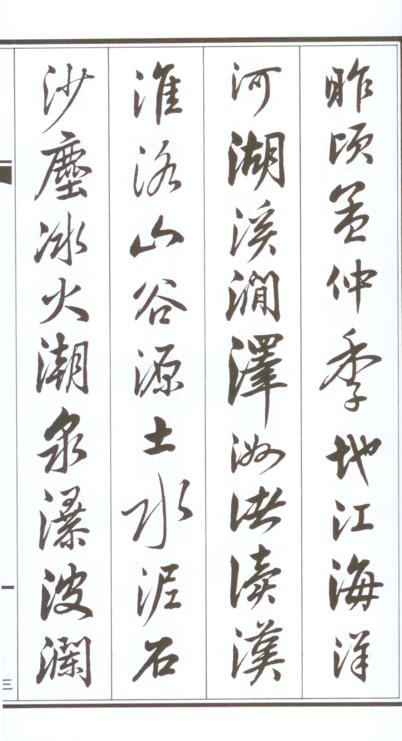 昨頃孟仲季地江海洋
河湖溪澗澤汝洪瀆漢
淮洛山谷源土水泥石
沙塵冰火潮泉瀑波瀾
三